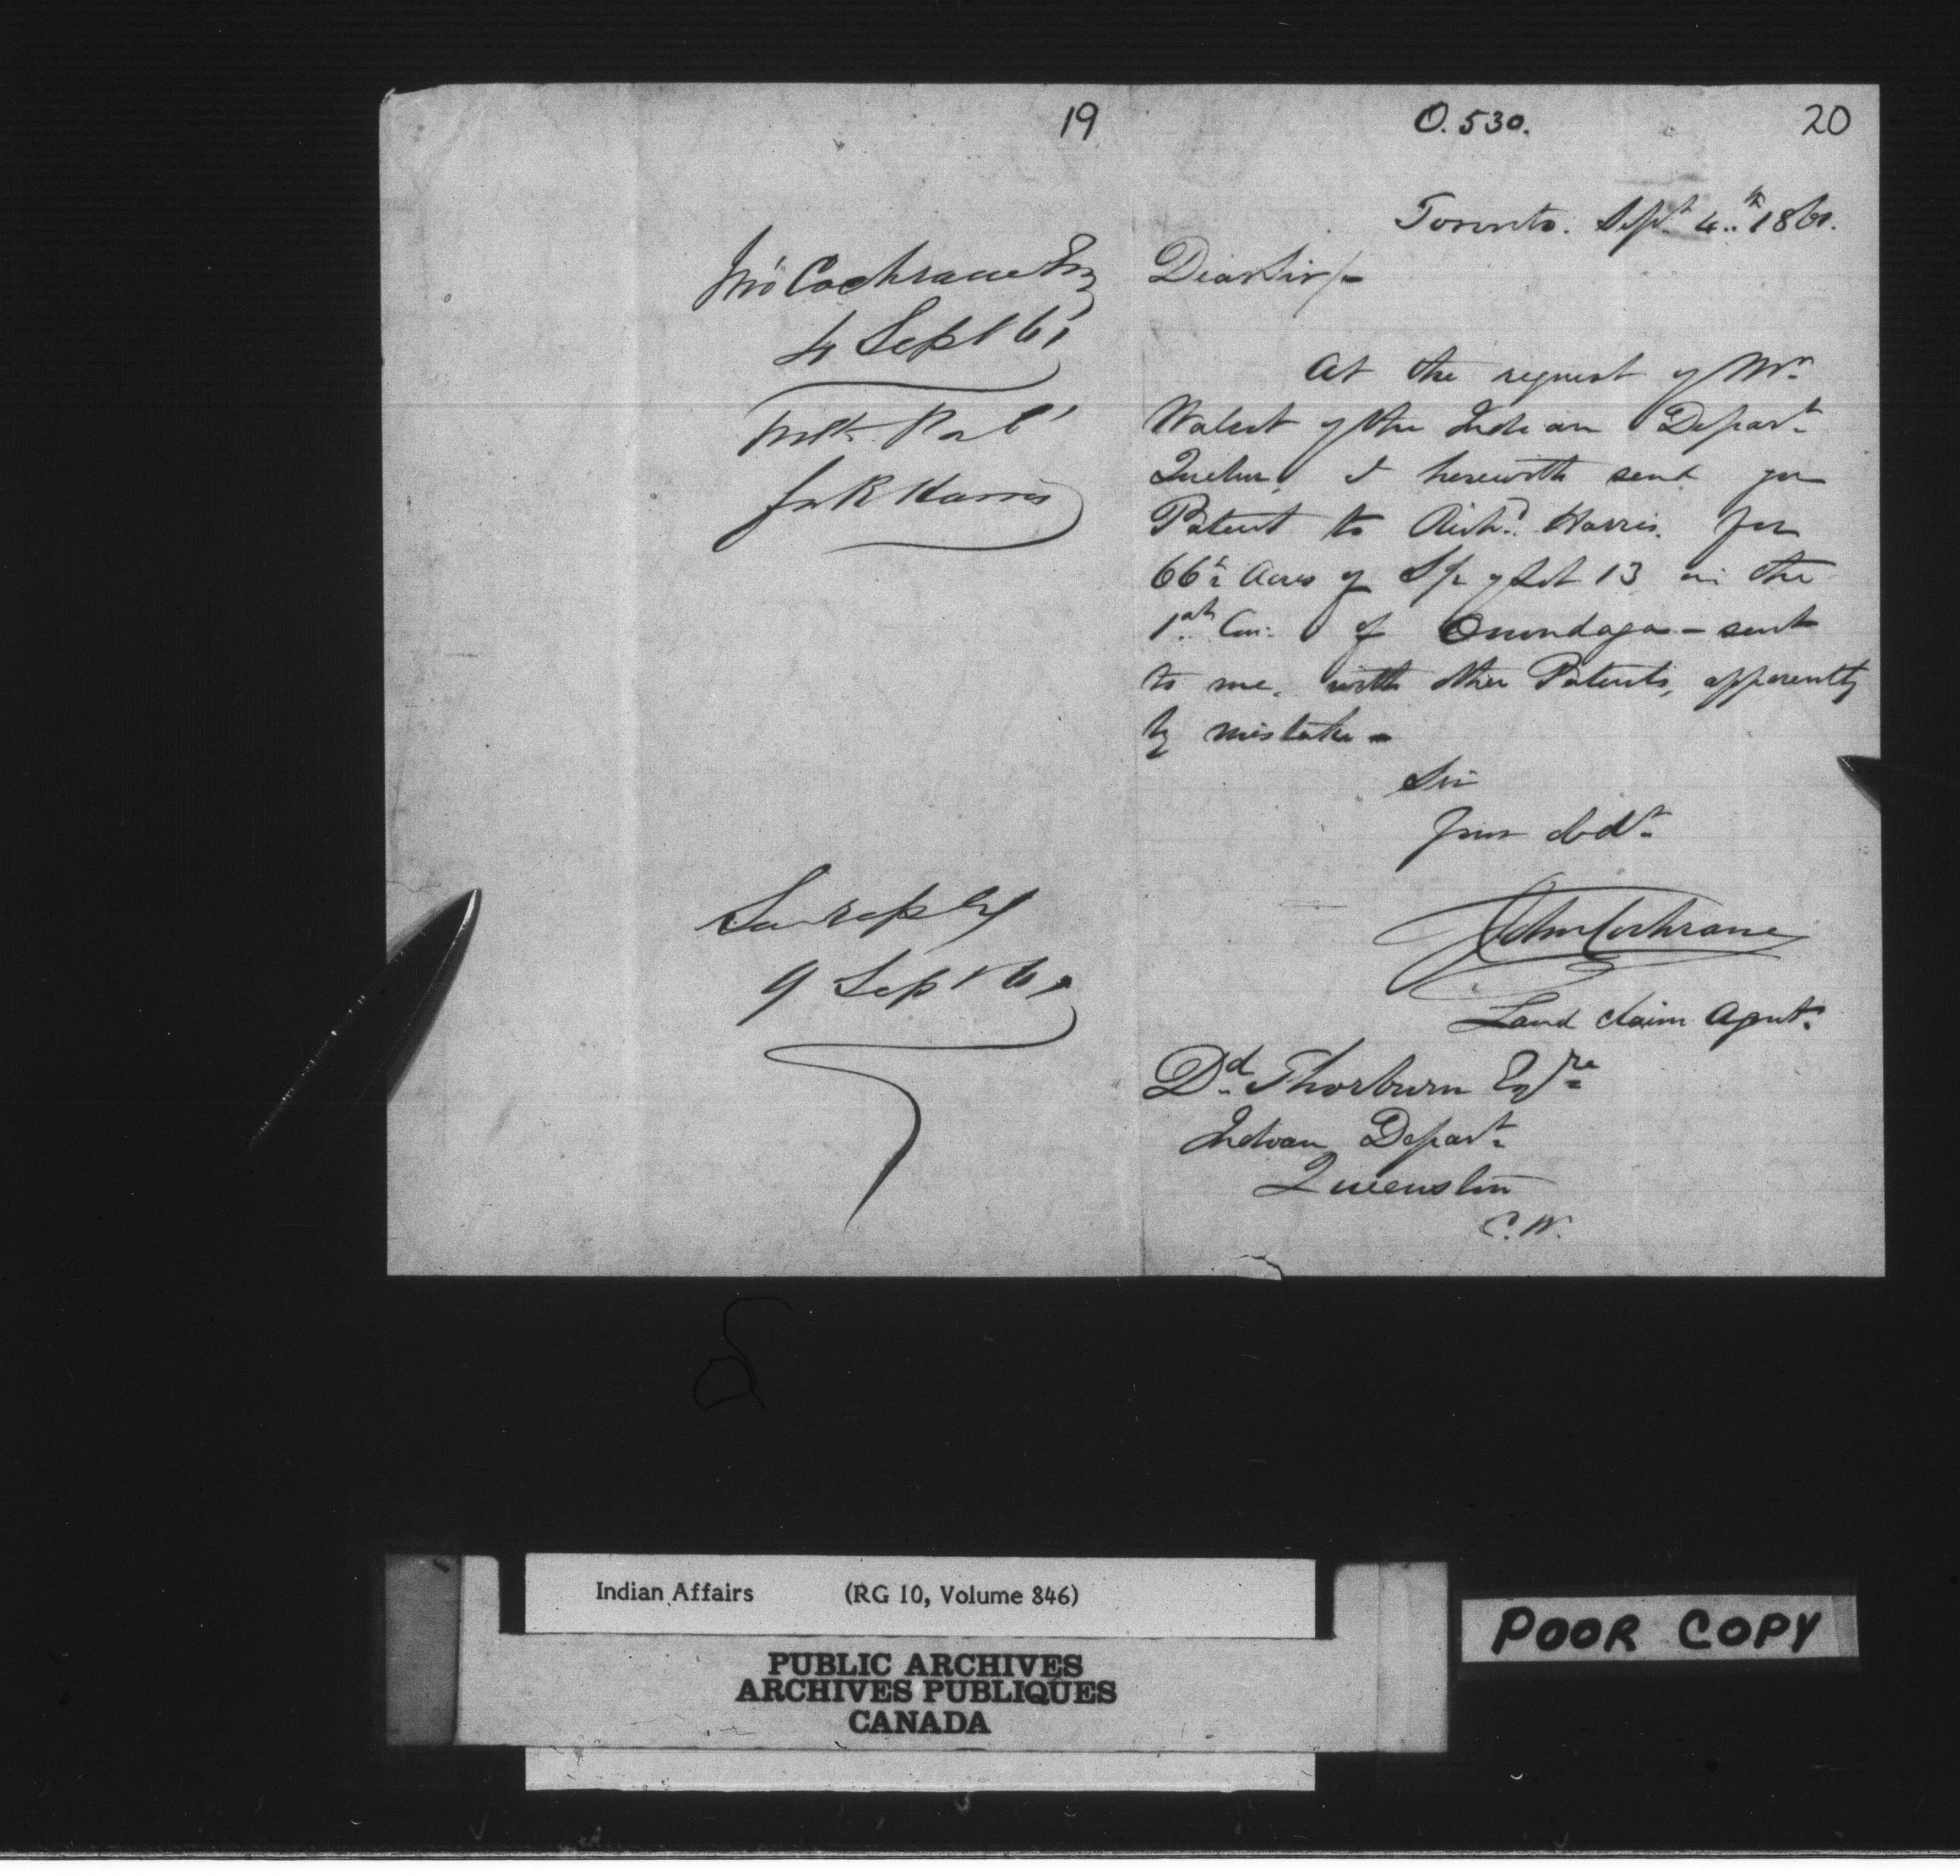 19
Jno Cochrane Esq
4 Sept 61
with Pat
for R Harris
See reply
9 Sept 61
O. 530.
20
Toronto. Sept 4th 1861.
Dear Sir/-
At the request of Mr
Walcot of the Indian Depart
Quebec, I herewith send you
Patent to Richd Harris. for
66½ Acres of S/½ of Lot 13 in the
1st Con: of Onondaga - sent
to me, with other Patents, apparently
by mistake -
Sir
Your obdt
John Cochrane
Land Claim Agent.
Dd Thorburn Esqre
Indian Depart
Queenston
C.W.
Indian Affairs (RG 10, Volume 846)
PUBLIC ARCHIVES
ARCHIVES PUBLIQUES
CANADA
POOR COPY